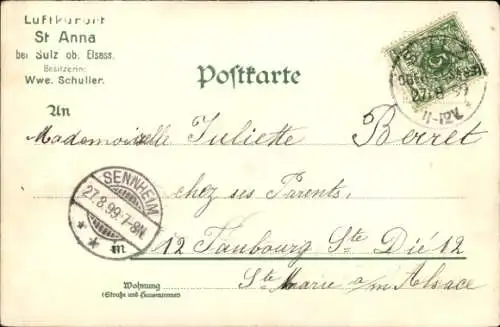 Luftkurort
St Anna
bei Sulz ob. Elsass.
Besitzerin:
Wwe. Schuller.
Postkarte
27.8.99
11-12V.
An
Mademoiselle Juliette Berret
SENNHEIM
27.8.99.7-8N
chez ses Parents,
in
12 Faubourg Ste Dié 12
Wohnung
(Straße und Hausnummer)
Ste Marie a/m Alsace